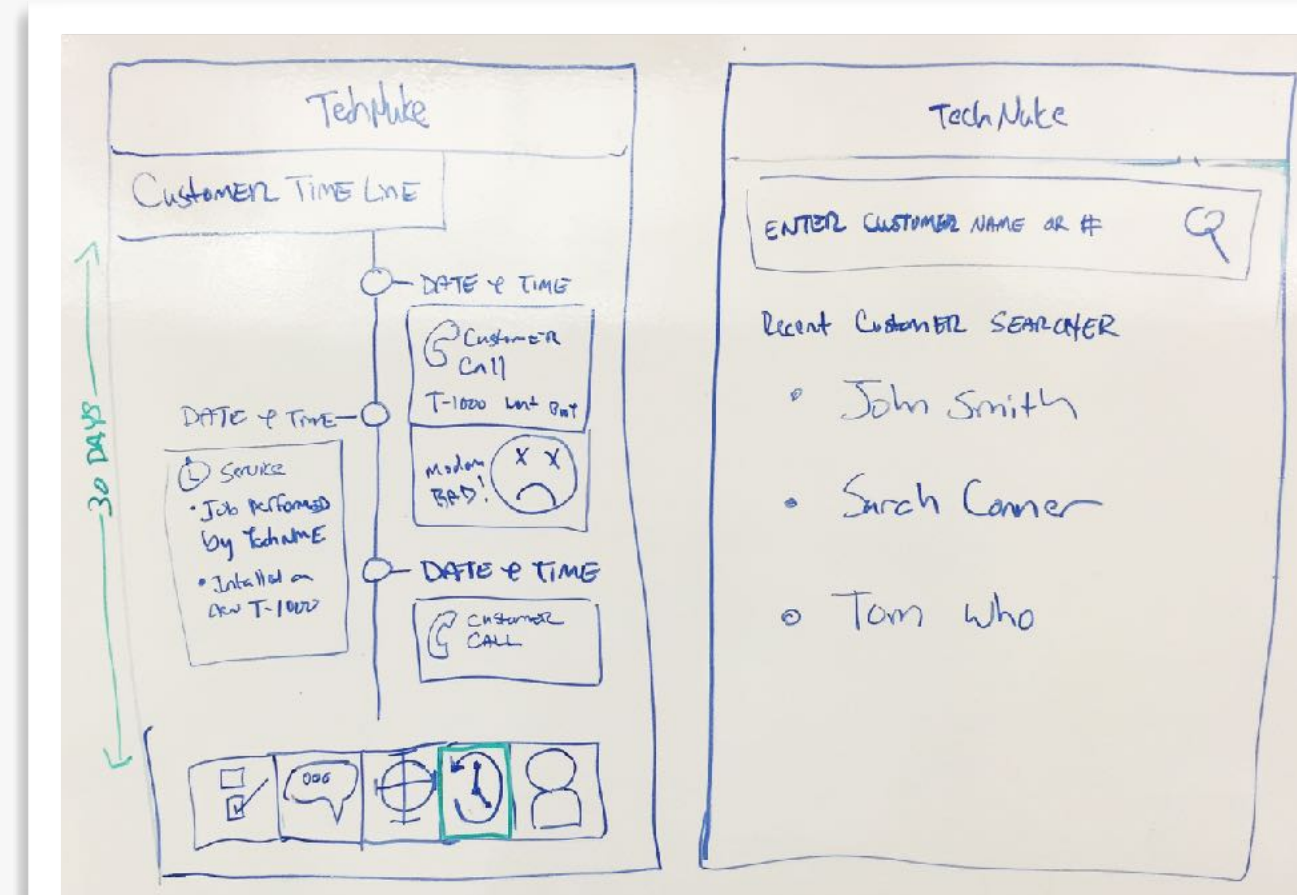 TechNuke
CUSTOMER TIME LINE
DATE & TIME
CUSTOMER
CALL
T-1000 went
DATE & TIME
Modem
BAD!
Service
• Job Performed
by
• Intalled
T-1000
DATE & TIME
CUSTOMER
CALL
30 DAYS
TechNuke
ENTER CUSTOMER NAME OR #
Recent CUSTOMER SEARCHER
• John Smith
• Sarah Conner
• Tom Who